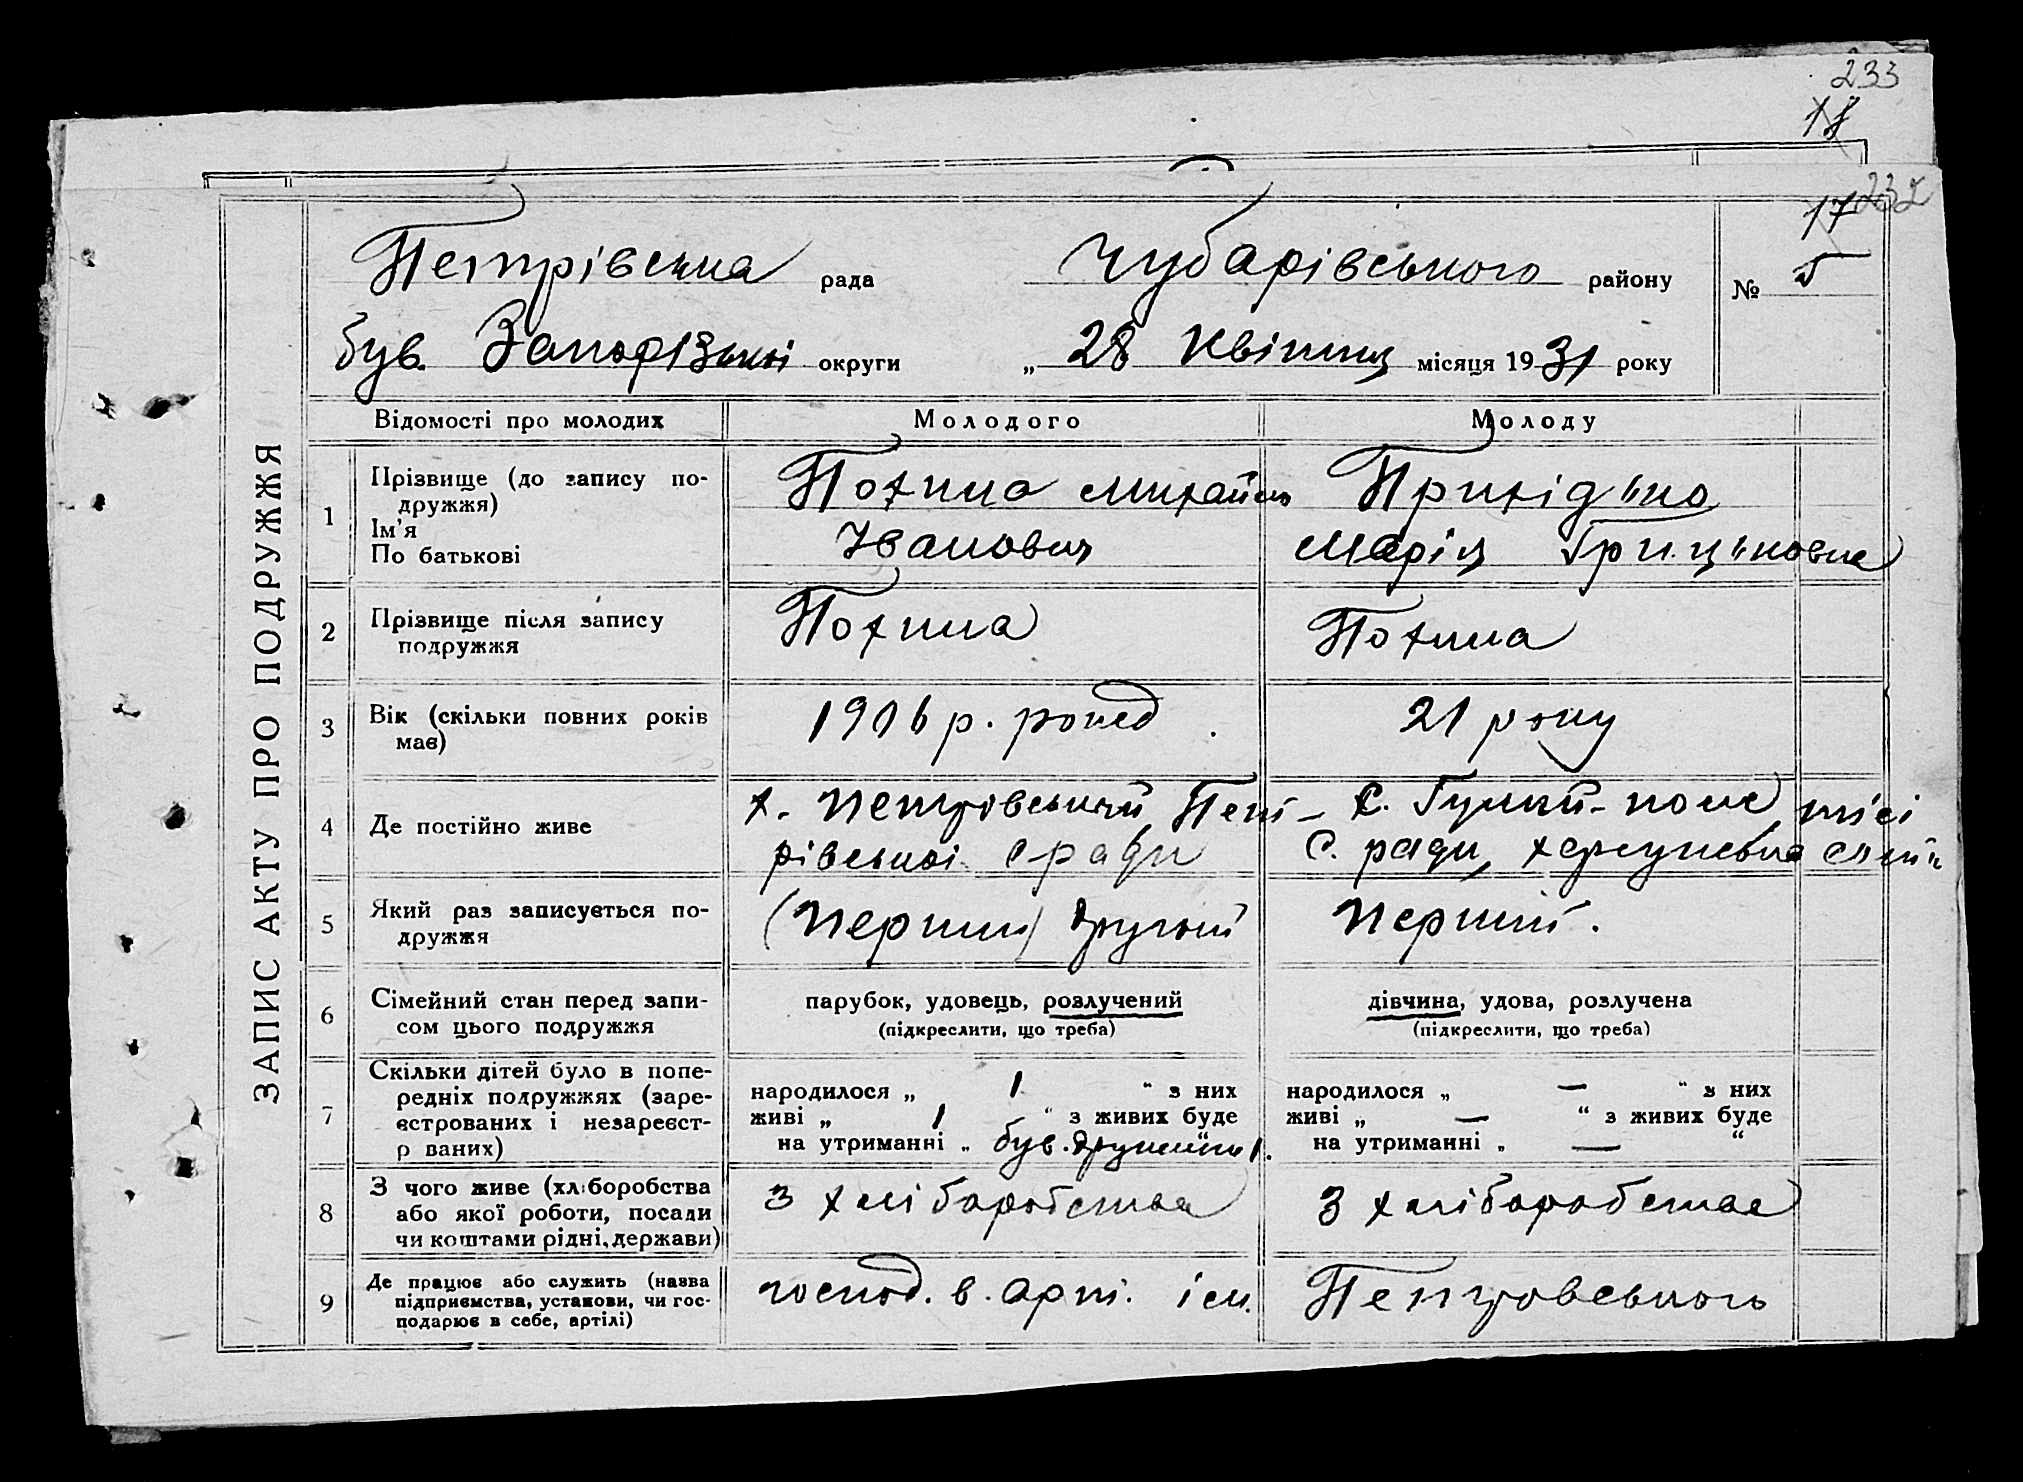 233
17
232
17
Петрівська рада Чубарівського району № 5
був. Запорізької округи „ 28 квітня місяця 1931 року
ЗАПИС АКТУ ПРО ПОДРУЖЖЯ
Відомості про молодих Молодого Молоду
1 Прізвище (до запису по-
дружжя)
Ім'я
По батькові
Похила Михайло
Іванович
Марія
2 Прізвище після запису
подружжя
Похила
Похила
3 Вік (скільки повних років
має)
1906 р. рожд
21 року
4 Де постійно живе
х. Петровський Пет-
рівської с ради
с. Гуляй-поле тієї
с. ради,
5 Який раз записується по-
дружжя
(перший) другий
перший.
6 Сімейний стан перед запи-
сом цього подружжя
парубок, удовець, розлучений
(підкреслити, що треба)
дівчина, удова, розлучена
(підкреслити, що треба)
7 Скільки дітей було в попе-
редніх подружжях (заре-
єстрованих і незареєст-
р ваних)
народилося „ 1 “ з них
живі „ 1 “ з живих буде
на утриманні „ був. дружини 1.
народилося „ — “ з них
живі „ — “ з живих буде
на утриманні „ — “
8 З чого живе (хліборобства
або якої роботи, посади
чи коштами рідні, держави)
З хліборобства
З хліборобства
9 Де працює або служить (назва
підприємства, установи, чи гос-
подарює в себе, артілі)
господ. в. арт. ім. Петровського